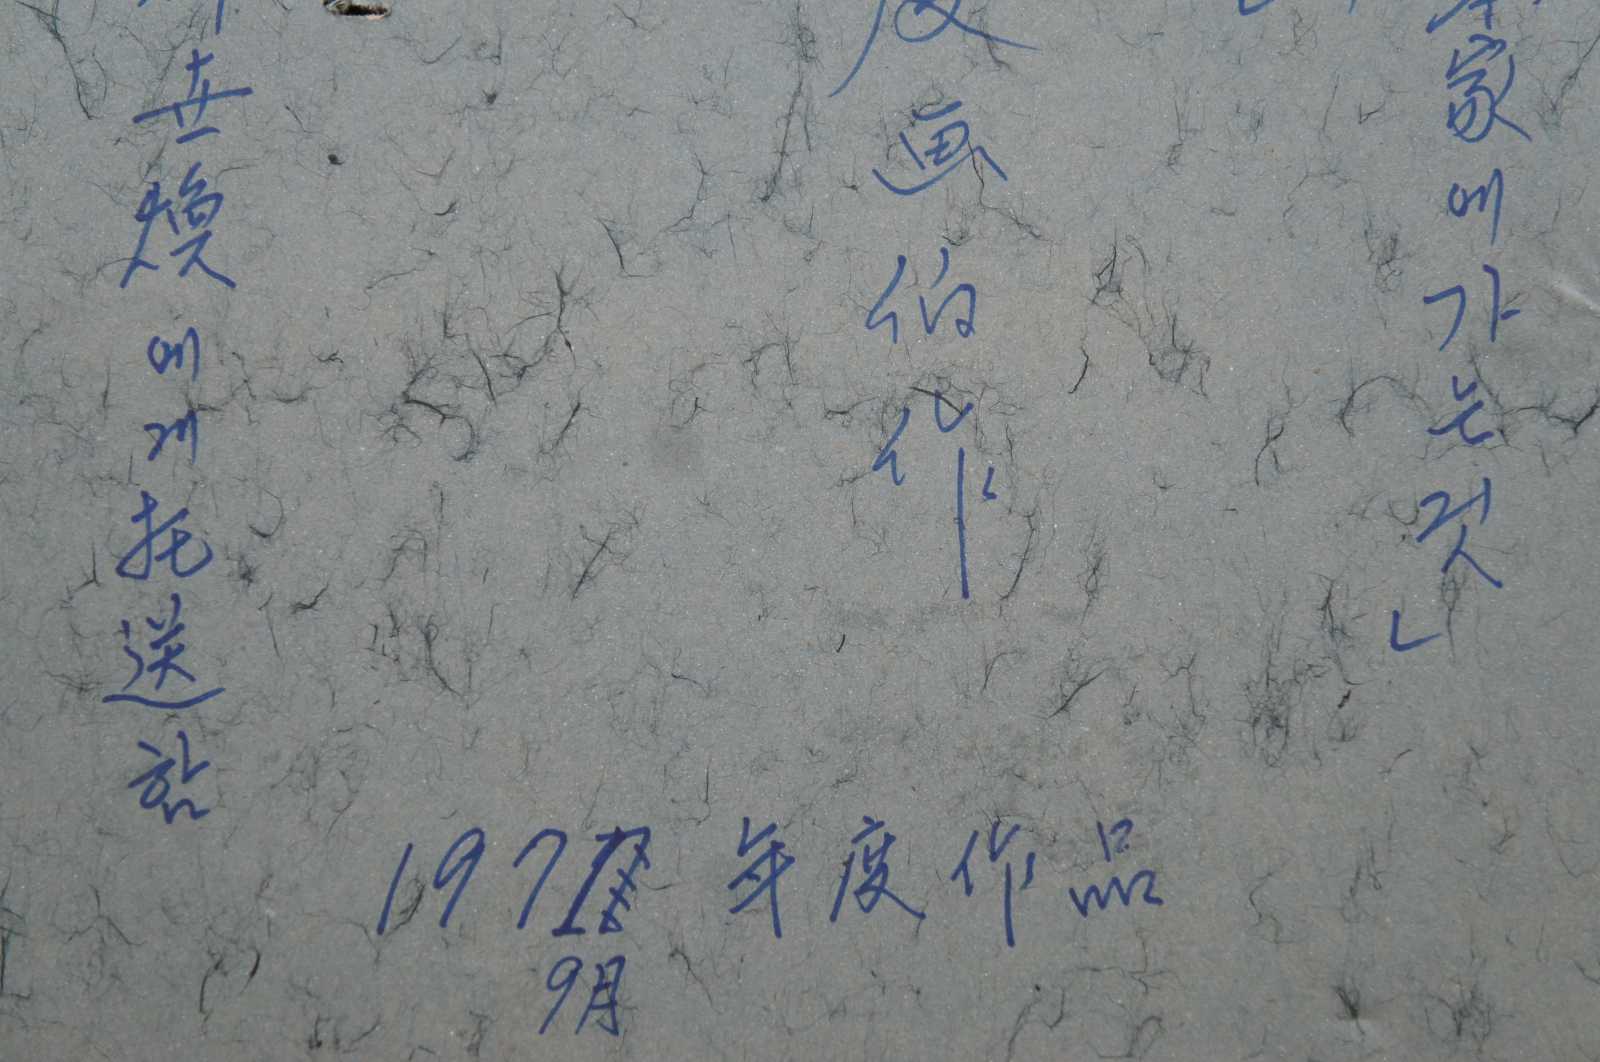 家에가는것」
画伯作
世煥에게托送함
197 年度作品
9月